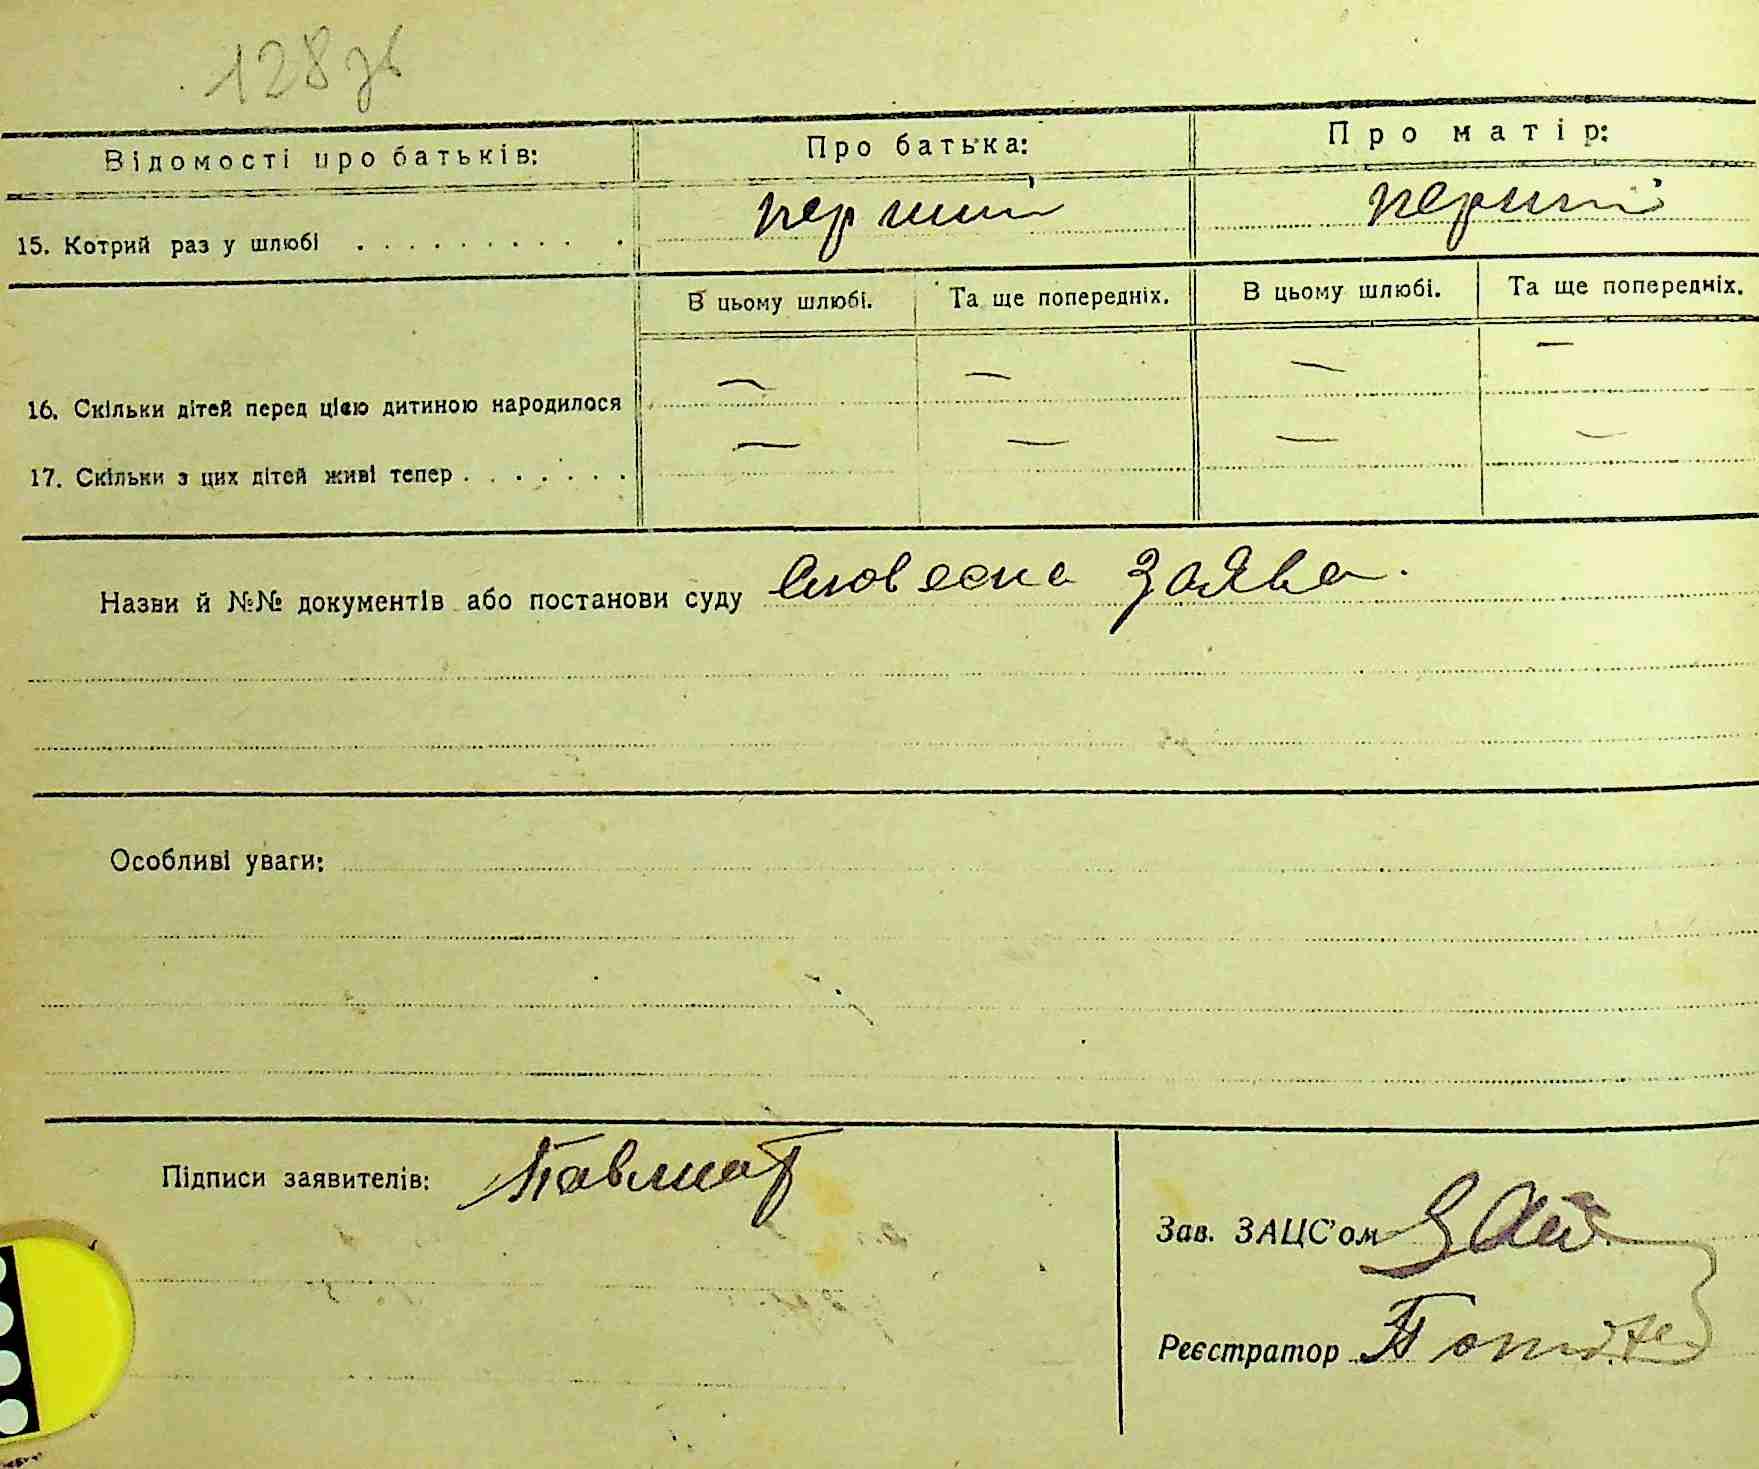 128 зв
Відомості про батьків: Про батька: Про матір:
15. Котрий раз у шлюбі . . . . . . . . . . перший перший
В цьому шлюбі. Та ще попередніх. В цьому шлюбі. Та ще попередніх.
16. Скільки дітей перед цією дитиною народилося — — — —
17. Скільки з цих дітей живі тепер . . . . . . . — — — —
Назви й №№ документів або постанови суду Словесна заява.
Особливі уваги:
Підписи заявителів:
Зав. ЗАЦС'ом
Реєстратор